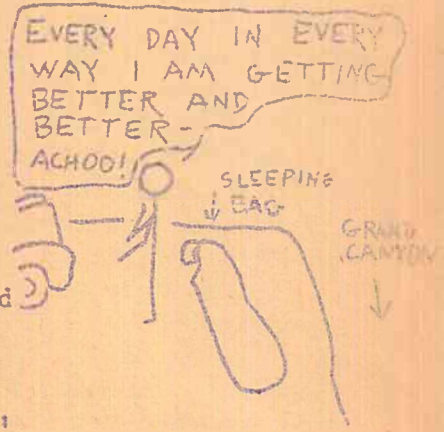 EVERY DAY IN EVERY
WAY I AM GETTING
BETTER AND
BETTER-
ACHOO!
SLEEPING
BAG
GRAND
CANYON
d